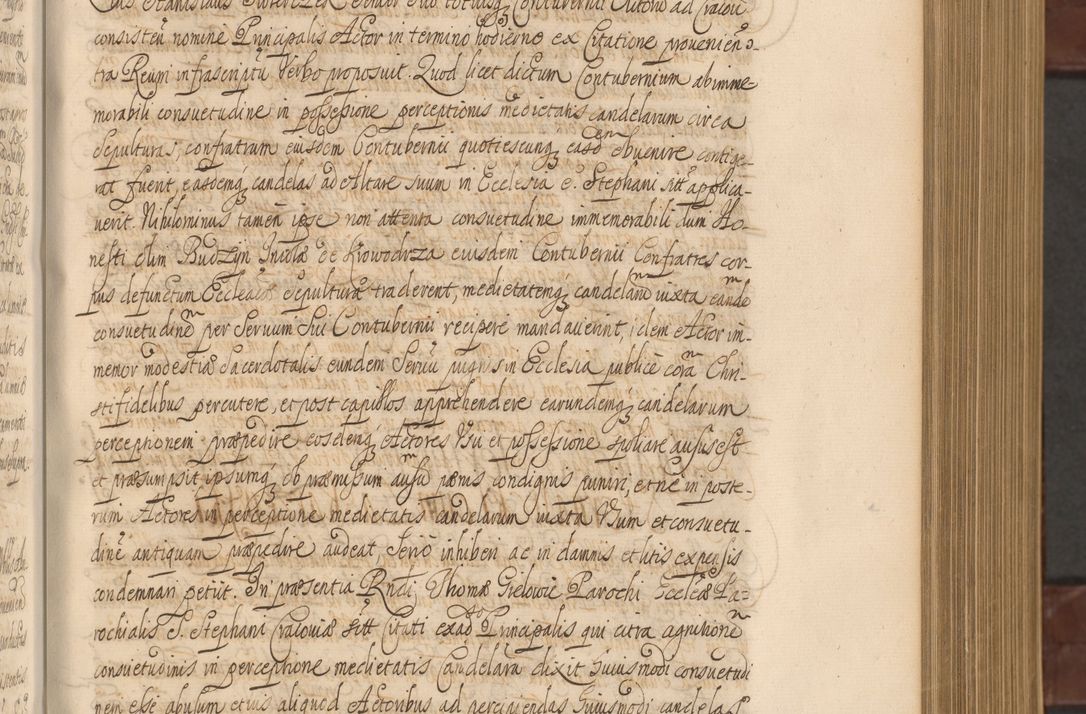 consisteñ nomine Principalis Actor in termino hodierno ex Citatione proueniẽn
tra Reum infrascriptũ Verbo proposuit. Quod licet dictum Contubernium abimme
morabili consuetudine in possessione perceptionis medietatis candelarum circa
Sepulturas, confratrum eiusdem Contubernii quotiescunq; easdem obuenire contige-
rat fuerit, easdemq; candelas ad Altare suum in Ecclesia S. Stephani sitt applica-
uerit. Nihilominus tameñ ipse non attenta consuetudine immemorabili dum Ho-
nesti olim Budzyn Incolæ de Krowodrza eiusdem Contubernii Confratres cor-
pus defunctum Ecclesiasticæ Sepulturæ traderent, medietatemq; candelarũ iuxta eandem
consuetudinem per Seruum Sui Contubernii recipere mandauerint, idem Actor im-
memor modestiæ Sacerdotalis eundem Seruũ pugnis in Ecclesia publice coram Chri-
stifidelibus percutere, et post capillos apprehendere earundemq; candelarum
perceptionem præpedire eosdemq; Actores Vsu et possessione spoliare ausus est
et præsumpsit ipsumq; ob præmissum ausum pænis condignis puniri, et ne in poste-
rum Actores in perceptione medietatis candelarum iuxta Vsum et consuetu-
dinẽ antiquam præpedire audeat, Serio inhiberi ac in damnis et litis expensis
condemnari petiit. In præsentia Rndi Thomæ Grelowic Parochi Ecclesiæ Pa=
rochialis S. Stephani Cracouiæ sitt Citati ex ad Principalis qui citra agnitionem
consuetudinis in perceptione medietatis Candelarũ dixit huiusmodi consuetudi
nem esse abusum et ius aliquod Actoribus ad percipiendas huiusmodi candelas